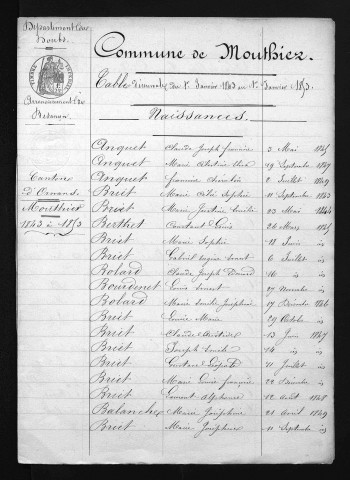 Département du
Doubs
Arrondissement de
Besançon
Canton
d'Ornans
Mouthier
1843 à 1853
Commune de Mouthiez
Table décennale du 1er Janvier 1843 au 1er Janvier 1853
Naissances
Anguet Claude Joseph 3 Mai 1845
Anguet Marie 29 Septembre 1849
Anguet 2 Juillet 1849
Briet Marie Sophie 11 Septembre 1843
Briet Marie Justine 23 Mai 1844
Berthet Constant Louis 26 Mars 1845
Briet Marie Sophie 18 Juin id
Briet Gabriel 6 Juillet id
Bolard Claude Joseph 16 id id
Bourdenet Louis 27 Novembre id
Bolard Marie Joséphine 17 Décembre 1846
Briet Louise Marie 29 Octobre id
Briet Claude 13 Juin 1847
Briet Joseph 14 id id
Briet Gustave 11 Juillet id
Briet Marie Louise 22 Décembre id
Briet Alphonse 12 Août 1848
Balanche Marie Joséphine 21 Avril 1849
Briet Marie Joséphine 11 Septembre id